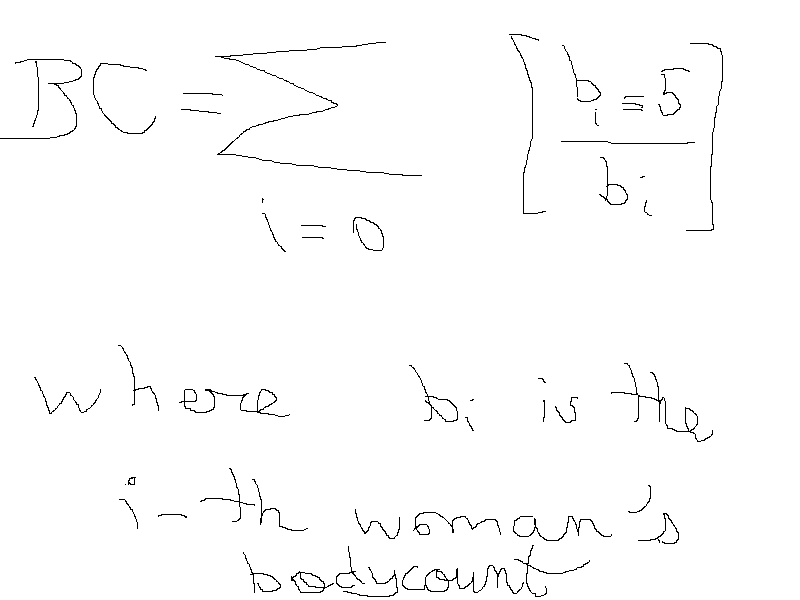 BC = ∑ [ bi = 5 / bi ]
i = 0
where bi is the
i-th woman's
bodycount